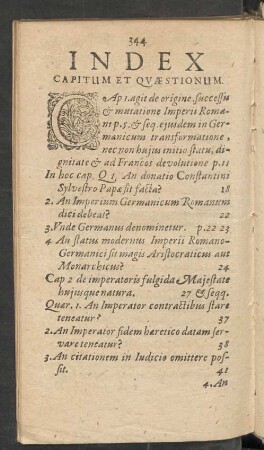 344
INDEX
CAPITUM ET QVÆSTIONUM.
CAp 1. agit de origine, successu
& mutatione Imperii Roma-
ni p. 5. & seq. ejusdem in Ger-
manicum transformatione,
nec non hujus initio statu, di-
gnitate & ad Francos devolutione p. 11
In hoc cap. Q 1, An donatio Constantini
Sylvestro Papæ sit facta? 18
2. An Imperium Germanicum Romanum
dici debeat? 22
3. Vnde Germanus denominetur. p. 22 23
4 An status modernus Imperii Romano-
Germanici sit magis Aristocraticus aut
Monarchicus? 24
Cap 2 de imperatoris fulgida Majestate
hujusque natura, 27 & seqq.
Quær. 1. An Imperator contractibus stare
teneatur? 37
2. An Imperator fidem hæretico datam ser-
vare teneatur? 38
3. An citationem in Iudicio omittere pos-
sit. 41
4. An